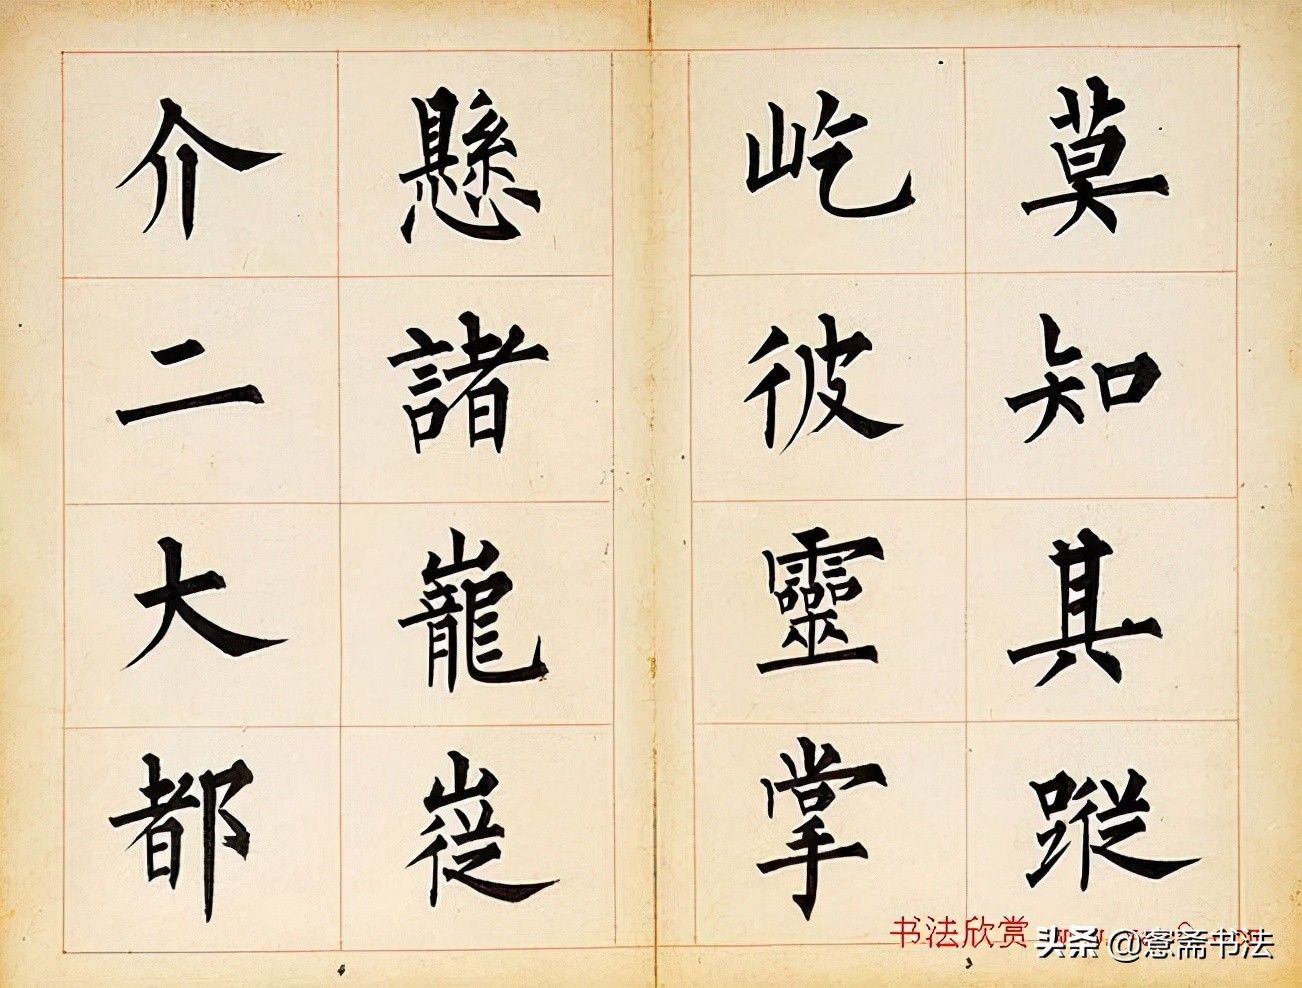 莫知其蹤
屹彼靈掌
懸諸巃嵷
介二大都
书法欣赏
头条 @窓斋书法